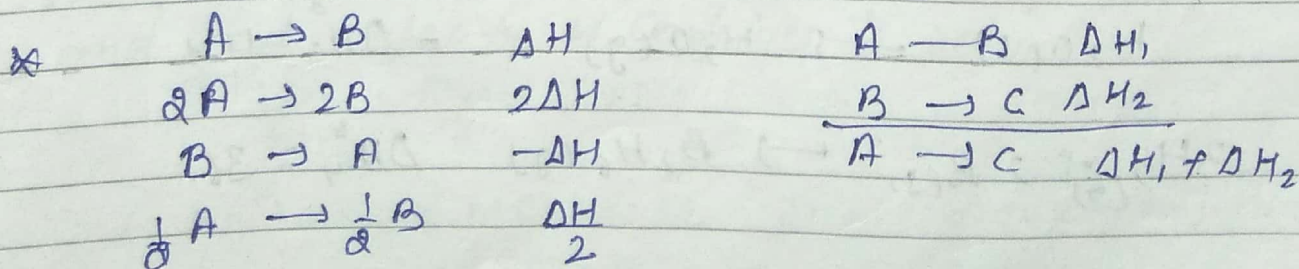 * A → B ΔH
2A → 2B 2ΔH
B → A -ΔH
1/2 A → 1/2 B ΔH/2
A — B ΔH₁
B → C ΔH₂
A → C ΔH₁ + ΔH₂